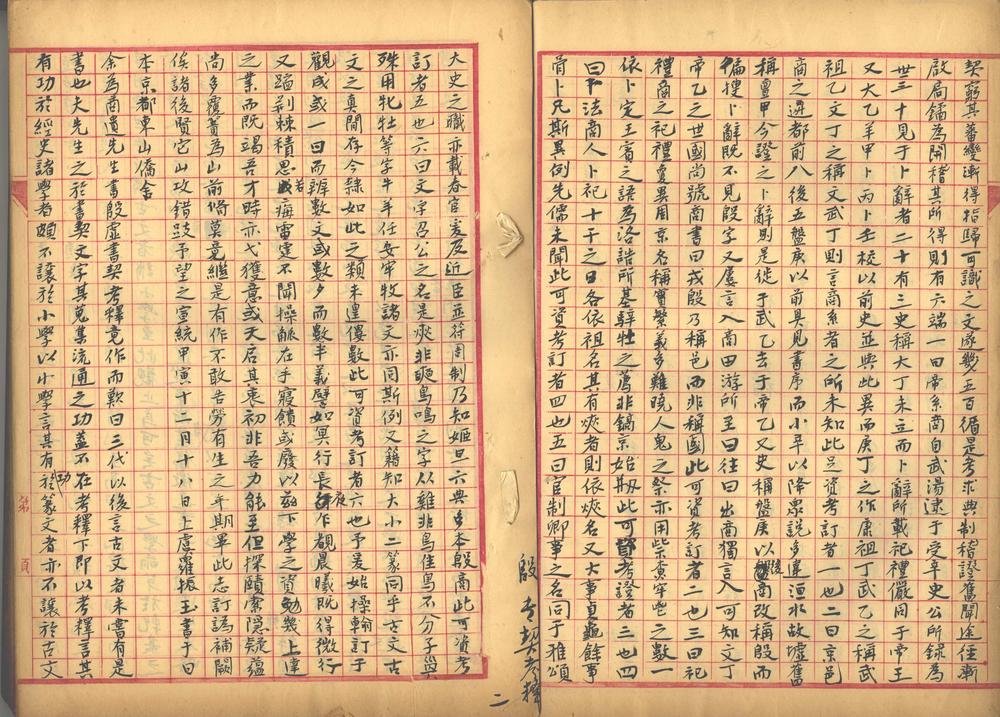 契窮其蕃變漸得指歸可識之文遂幾五百循是考求典制稽證舊聞途徑漸
啟扃鐍為開稽其所得則有六端一曰帝系商自武湯逮于受辛史公所錄為
世三十見于卜辭者二十有三史稱大丁未立而卜辭所載祀禮儼同于帝王
又大乙羊甲卜丙卜壬校以前史並與此異而庚丁之作康祖丁武乙之稱武
祖乙文丁之稱文武丁則言商系者之所未知此足資考訂者一也二曰京邑
商之遷都前八後五盤庚以前具見書序而小辛以降眾說多違洹水故墟舊
稱亶甲今證之卜辭則是徙于武乙去于帝乙又史稱盤庚以後商改稱殷而
徧搜卜辭既不見殷字又屢言入商田游所至曰往曰出商獨言入可知文丁
帝乙之世國尚號商書曰戎殷乃稱邑而非稱國此可資考訂者二也三曰祀
禮商之祀禮敻異周京名稱實繁義多難曉人鬼之祭亦用柴尞牢鬯之數一
依卜定王賓之語為洛誥所基騂牡之薦非鎬京始刱此可資考證者三也四
曰卜法商人卜祀十干之日各依祖名其有爽者則依爽名又大事貞龜餘事
骨卜凡斯異例先儒未聞此可資考訂者四也五曰官制卿事之名同于雅頌
殷書契考釋
二
大史之職亦載春官爰及近臣並符周制乃知姬旦六典多本殷商此可資考
訂者五也六曰文字召公之名是奭非奭鳥鳴之字从雞非鳥隹鳥不分子㠱
殊用牝牡等字牛羊任安牢牧諸文亦同斯例又籀知大小二篆同乎古文古
文之真間存今隸如此之類未遑僂數此可資考訂者六也予爰始操翰訂于
觀成或一日而辨數文或數夕而數半義譬如冥行長夜乍覩晨曦既得微行
又蹈荊棘積思若痗雷霆不聞操觚在手寢饋或廢以茲下學之資勉幾上達
之業而既竭吾才時亦弋獲意或天启其衷初非吾力能至但探賾索隱疑蘊
尚多覆簣為山前脩莫竟繼是有作不敢告勞有生之年期畢此志訂譌補闕
俟諸後賢它山攻錯跂予望之宣統甲寅十二月十八日上虞羅振玉書于日
本京都東山僑舍
余為商遺先生書殷虛書契考釋竟作而歎曰三代以後言古文者未嘗有是
書也夫先生之於書契文字其蒐集流通之功蓋不在考釋下即以考釋言其
有功於經史諸學者頗不讓於小學以小學言其有功於篆文者亦不讓於古文
第 頁